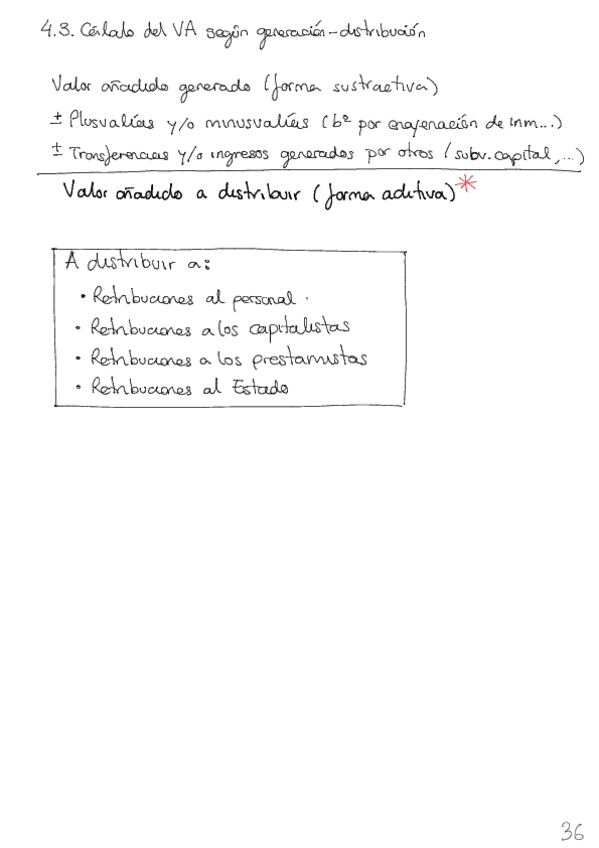 4.3. Cálculo del VA según generación-distribución
Valor añadido generado (forma sustractiva)
± Plusvalías y/o minusvalías (bº por enajenación de inm...)
± Transferencias y/o ingresos generados por otros (subv. capital, ...)
Valor añadido a distribuir (forma aditiva)*
A distribuir a:
• Retribuciones al personal.
• Retribuciones a los capitalistas
• Retribuciones a los prestamistas
• Retribuciones al Estado
36